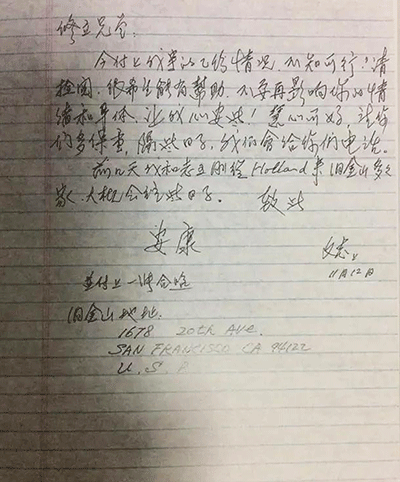 修立兄台:
今付上我事的一些情况,不知可行?请
检阅,很希望能有帮助,不要再影响你的情
绪和身体,让我心安些!慧心可好,请你
们多保重,隔些日子,我们会给你们电话。
前几天我和志立刚从Holland来旧金山
家,大概会住些日子。 致此
安康
11月12日
并付上一张合照
旧金山地址:
1678 20th AVE.
SAN FRANCISCO CA 94122
U.S.A